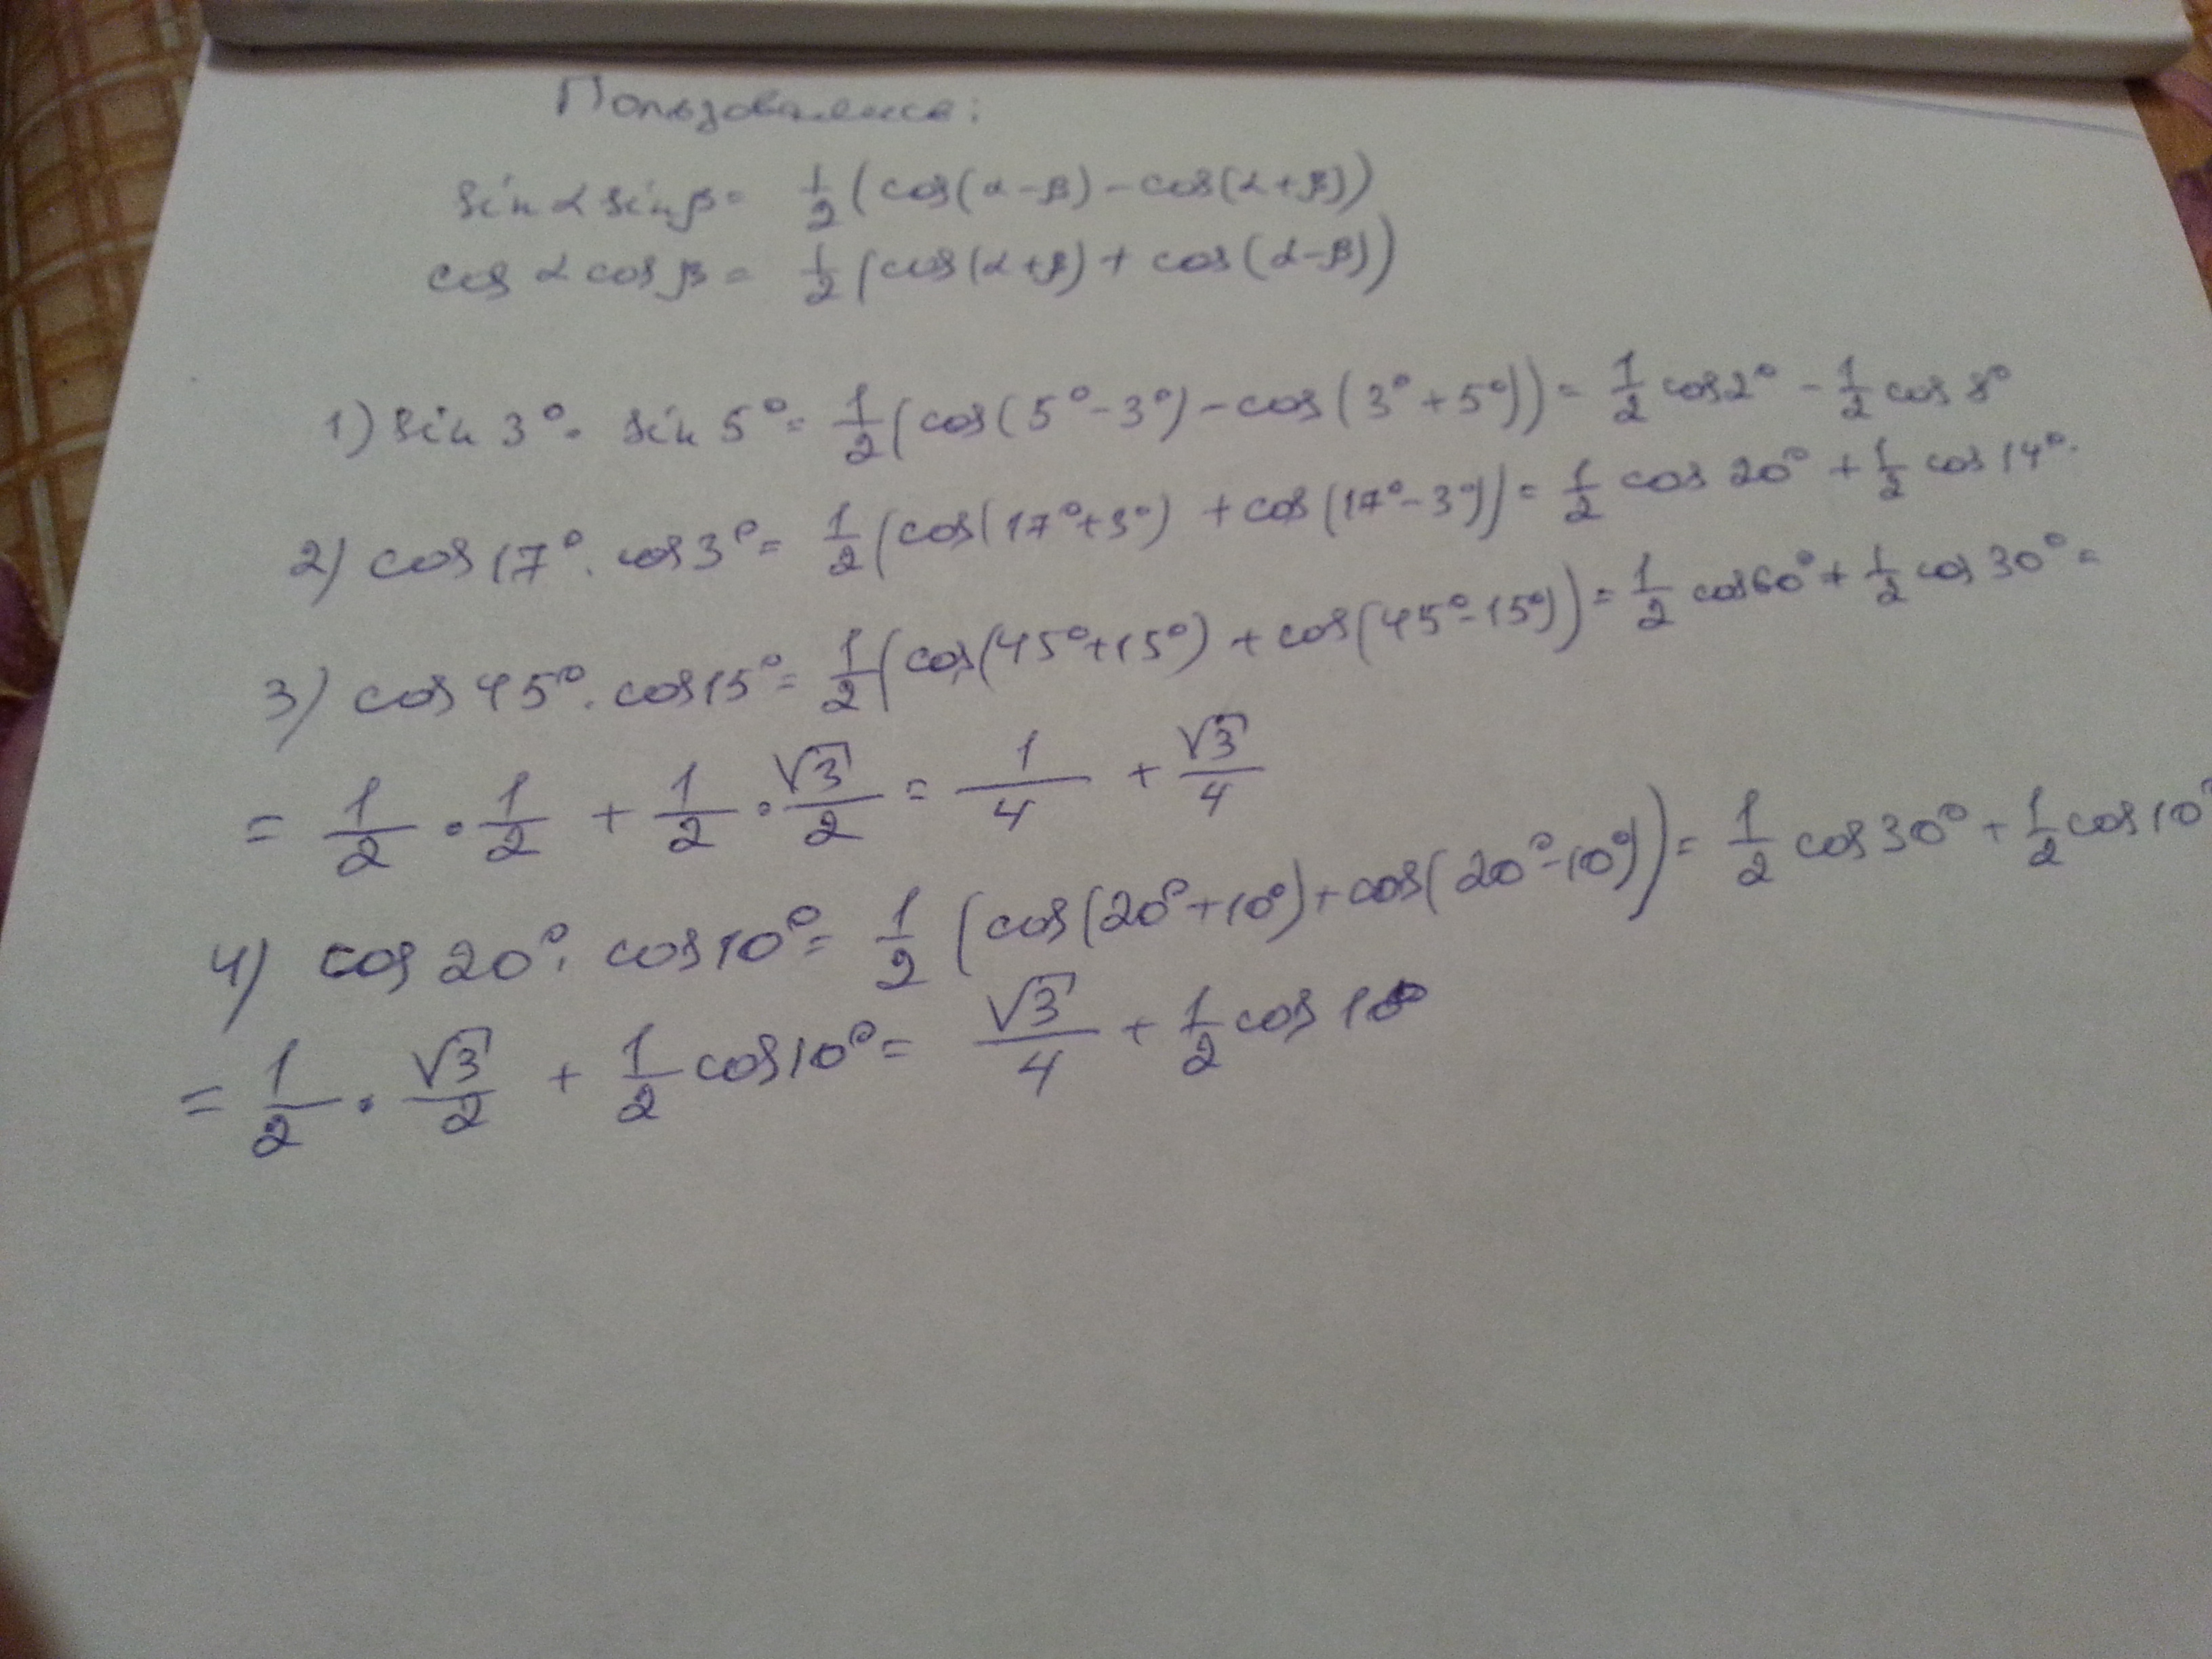 Пользовались:
sin α sin β = 1/2 (cos(α-β) - cos(α+β))
cos α cos β = 1/2 (cos(α+β) + cos(α-β))
1) sin 3° · sin 5° = 1/2 (cos(5°-3°) - cos(3°+5°)) = 1/2 cos2° - 1/2 cos 8°
2) cos 17° · cos 3° = 1/2 (cos(17°+3°) + cos(17°-3°)) = 1/2 cos 20° + 1/2 cos 14°.
3) cos 45° · cos 15° = 1/2 (cos(45°+15°) + cos(45°-15°)) = 1/2 cos60° + 1/2 cos 30° =
= 1/2 · 1/2 + 1/2 · √3/2 = 1/4 + √3/4
4) cos 20° · cos 10° = 1/2 (cos(20°+10°) + cos(20°-10°)) = 1/2 cos 30° + 1/2 cos 10°
= 1/2 · √3/2 + 1/2 cos 10° = √3/4 + 1/2 cos 10°